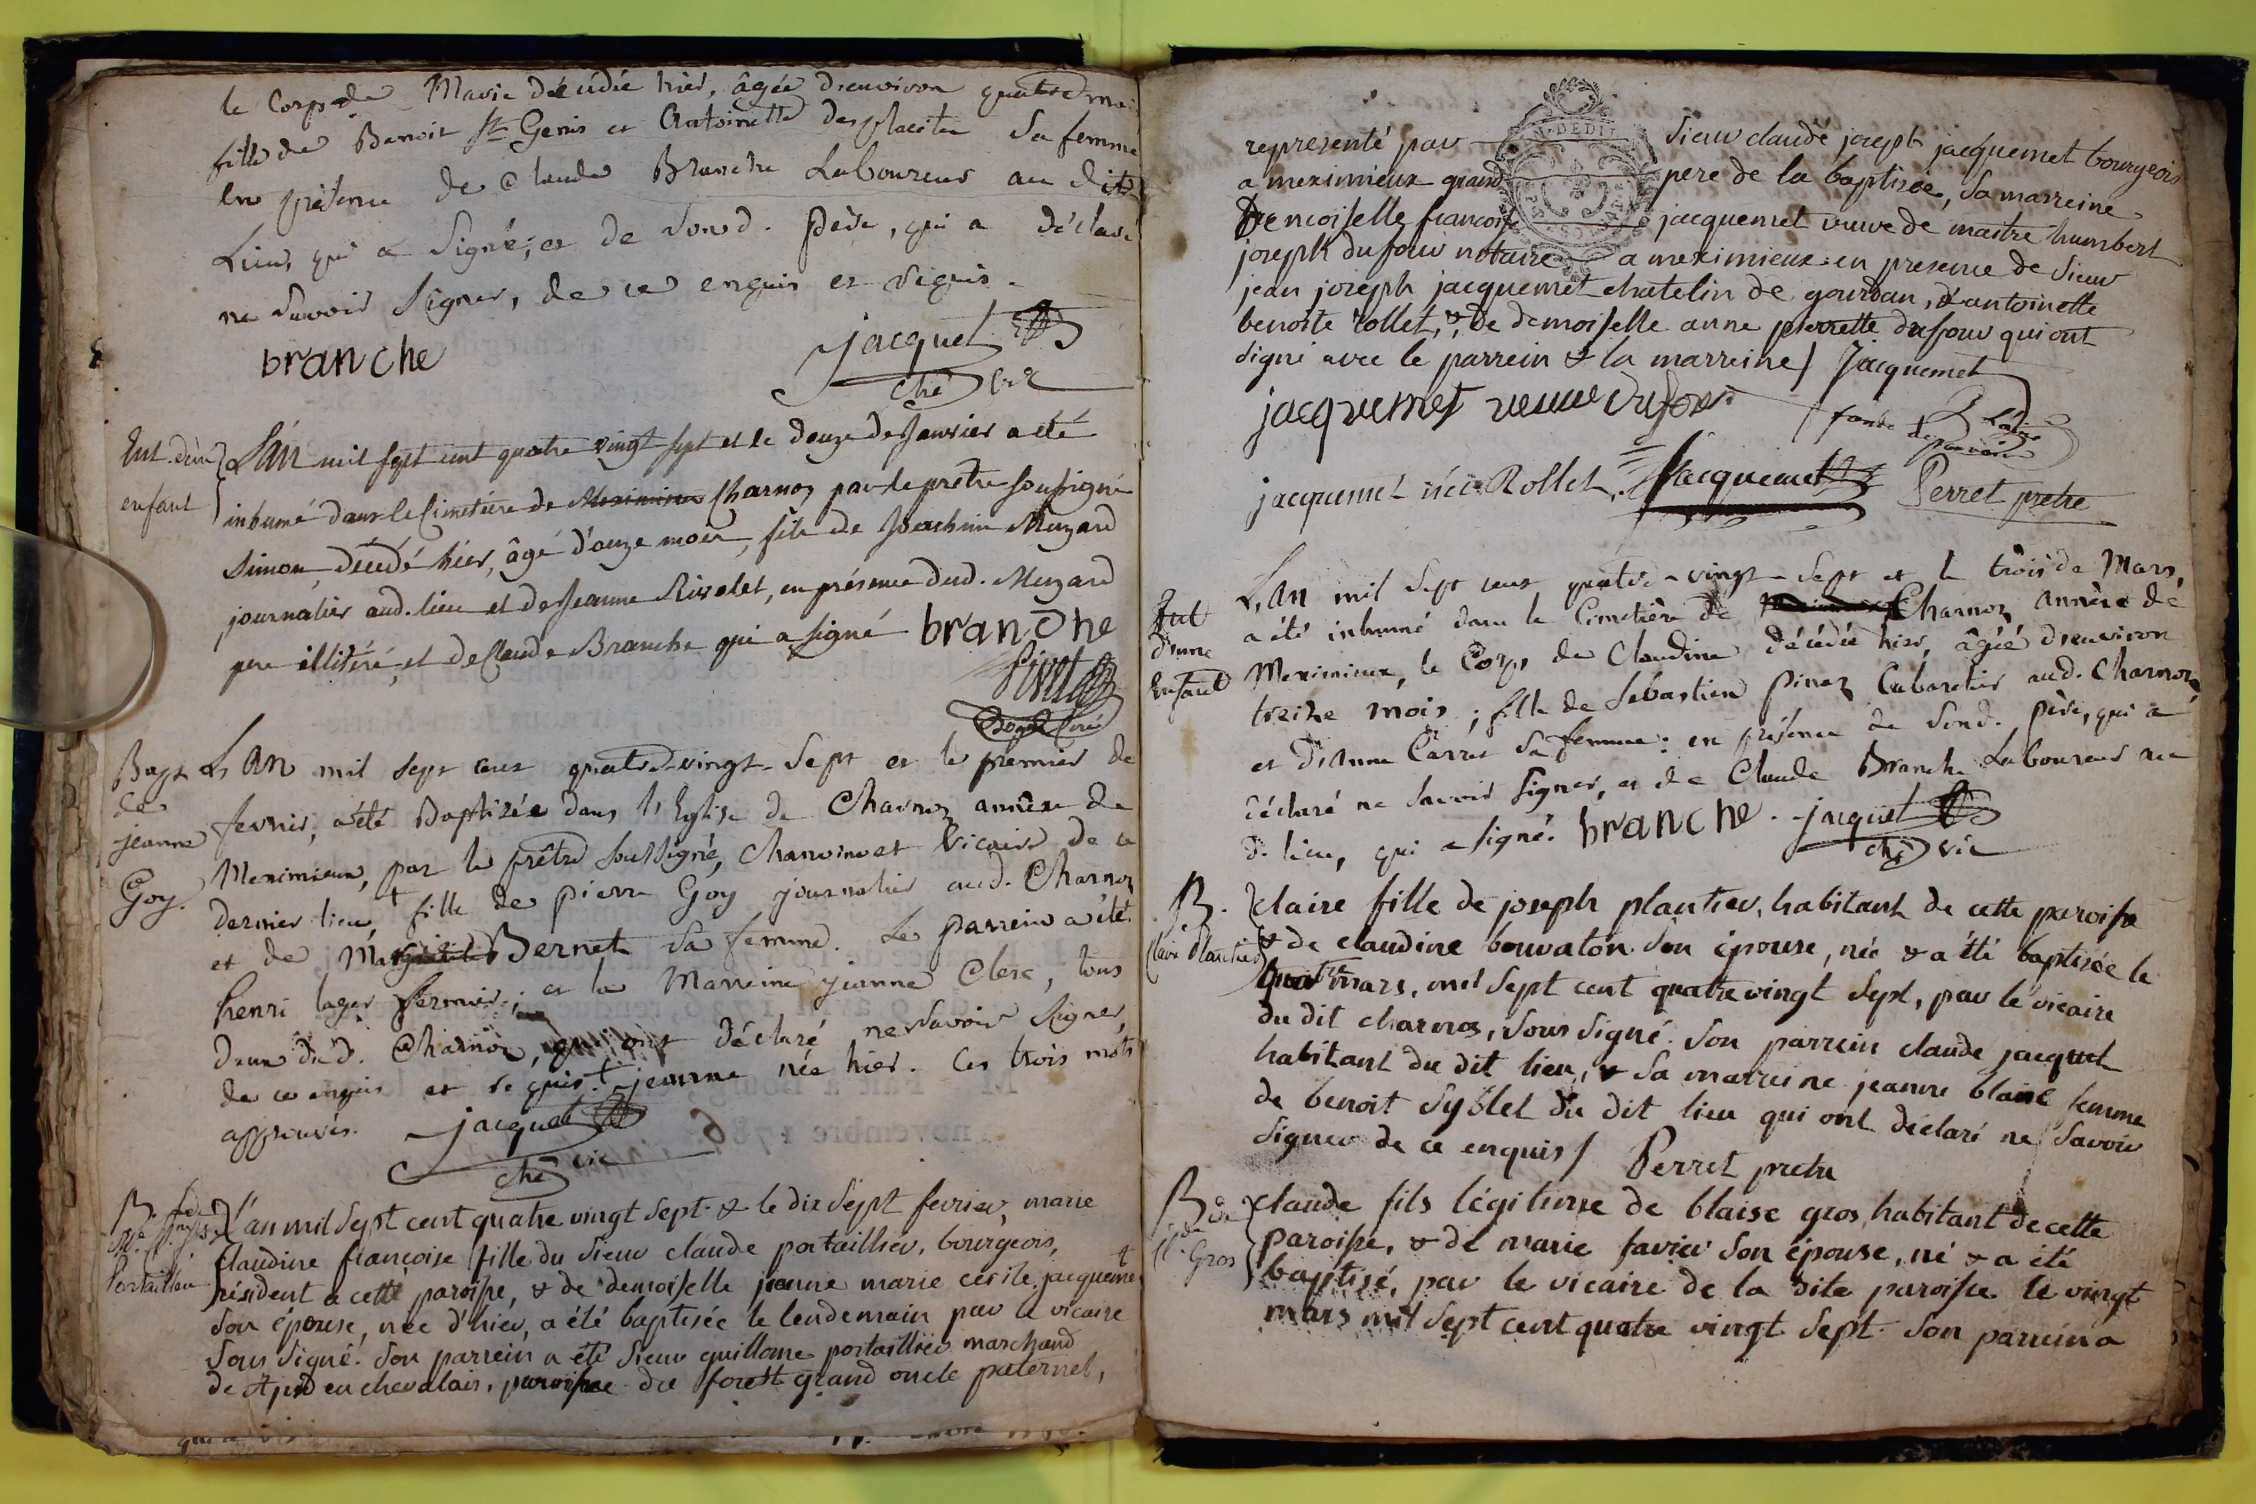 le Corps de Marie décédée hier, âgée d'environ quatre moi
fille de Benoit St Genis et Antoinette desplacite Sa femme
En présence de Claude Branche Laboureur au dit
Lieu, qui a Signé; et de Sond. père, qui a déclaré
ne Savoir Signer, de ce enquis et requis.
branche jacquet
che vic
Ent. d'un
enfant
L'an mil sept cent quatre vingt sept et le douze de Janvier a été
inhumé dans le Cimetiere de Meximieux Charnoz par le prêtre soussigné
Simon, décédé hier, âgé d'onze mois, fils de Joachim Muzard
journalier aud. lieu et de Jeanne Rivolet, en présence dud. Muzard
pere illitéré, et de Claude Branche qui a signé branche
Bapt
de
jeanne
Goy.
L'an mil sept cent quatre-vingt-Sept et le premier de
fevrier, a été Baptisée dans l'Eglise de Charnoz annèxe de
Meximieux, par le prêtre soussigné, chanoine et Vicaire de ce
dernier lieu, + fille de pierre Goy journalier aud. Charnoz
et de Marguerite Bernet Sa femme. Le parrein a été
henri lager fermier; et la Marreine jeanne Clerc, tous
deux dud. Charnoz, qui ont déclaré ne Savoir Signer,
de ce enquis et requis. + jeanne née hier. Ces trois mots
approuvés. jacquet
che vic
B. de
Portaillier
L'an mil Sept cent quatre vingt Sept & le dix Sept fevrier, marie
claudine françoise fille du Sieur claude portaillier, bourgeois,
résident a cette paroisse, & de demoiselle jeanne marie cécile jacquemet
Son épouse, née d'hier, a été baptisée le lendemain par le vicaire
Sous Signé. Son parrein a été Sieur guillome portaillier marchand
de en chevalair, paroisse du forest grand oncle paternel,
representé par Sieur claude joseph jacquemet bourgeois
a meximieux grand pere de la baptisée, Sa marreine
Demoiselle francoise jacquemet veuve de maitre humbert
joseph dufour notaire a meximieux en presence de Sieur
jean joseph jacquemet chatelin de gourdan, d'antoinette
benoite rollet, & de demoiselle anne pierrette dufour qui ont
signé avec le parrein & la marreine / Jacquemet
jacquemet veuve dufour
jacquemet née Rollet. Jacquemet Perret pretre
Ent
d'une
Enfant
L'an mil Sept cent quatre-vingt-Sept et le trois de Mars,
a été inhumé dans le Cimetière de Charnoz annèxe de
Meximieux, le Corps de Claudine décédée hier, âgée d'environ
treize mois; fille de Sebastien pinaz Cabaretier aud. Charnoz
et d'Anne Carret Sa femme: en présence de Sond. père, qui a
déclaré ne Savoir Signer, et de Claude Branche Laboureur au
d. lieu, qui a signé. branche. jacquet
che vic
B.
Claire Plantier
claire fille de joseph plantier, habitant de cette paroisse
& de claudine bouvaton Son épouse, née & a été baptisée le
mars, mil Sept cent quatre vingt Sept, par le vicaire
du dit charnos, Sous Signé. Son parrein claude jacquet
habitant du dit lieu, & Sa marreine jeanne blanc femme
de benoit Syblet du dit lieu qui ont déclaré ne Savoir
Signer de ce enquis / Perret pretre
B. de
Cl. Gros
claude fils légitime de blaise gros, habitant de cette
paroisse, & de marie favier Son épouse, né & a été
baptisé, par le vicaire de la dite paroisse le vingt
mars mil Sept cent quatre vingt Sept. Son parrein a